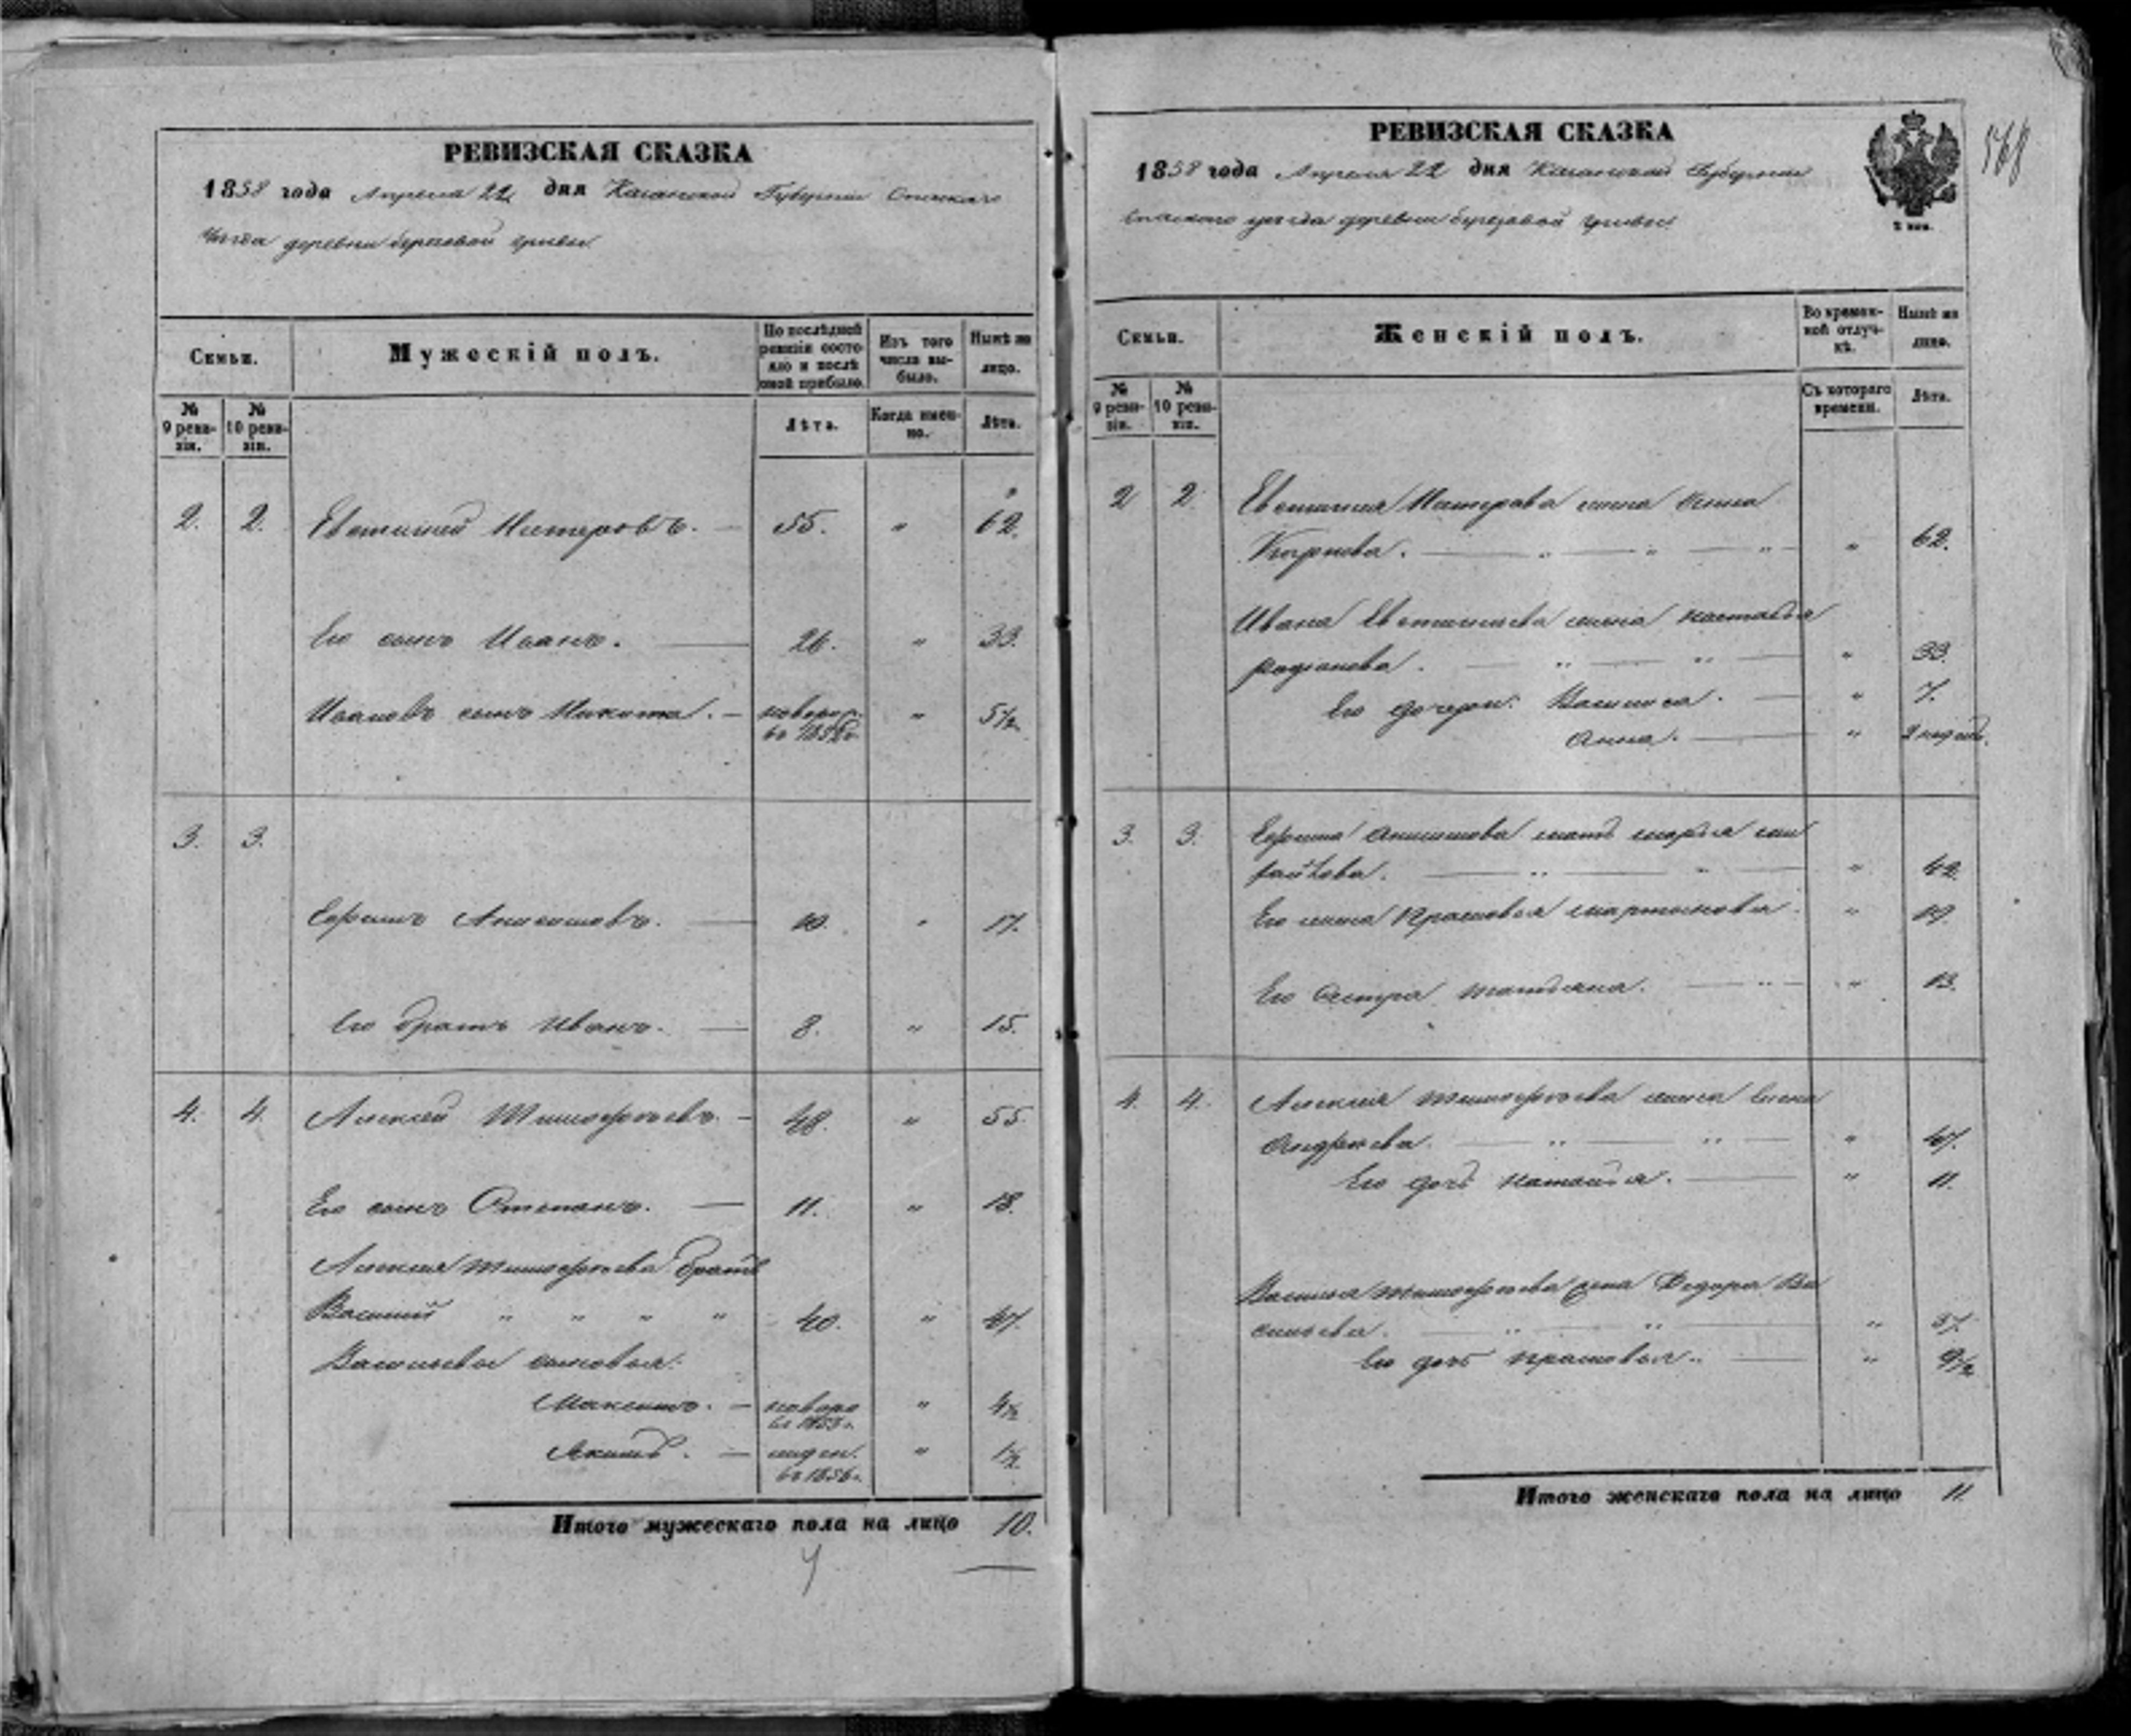 РЕВИЗСКАЯ СКАЗКА
1858 года Апреля 22 дня Казанской Губернiи Спаскаго
Уезда деревни березовой гривы
Семьи.
Мужескiй полъ.
По послѣдней ревизiи состояло и послѣ оной прибыло.
Изъ того числа выбыло.
Нынѣ на лицо.
№ 9 ревизiи.
№ 10 ревизiи.
Лѣта.
Когда именно.
Лѣта.
2. 2. 55. " 62.
Его сынъ Иванъ. 26. " 33.
Ивановъ сынъ Никита. новорож. въ 1852г. " 5½
3. 3.
Ефимъ Анисимовъ. 10. " 17.
Его братъ Иванъ. 8. " 15.
4. 4. Алексей Тимофеевъ. 48. " 55.
Его сынъ Степанъ. 11. " 18.
Алексея Тимофеева братъ
Василий " " " " 40. " 47.
Васильевы сыновья:
Максимъ. новоро въ 1853г. " 4½
Акимъ. въ 1856г. " 1½
Итого мужескаго пола на лицо 10.
РЕВИЗСКАЯ СКАЗКА
1858 года Апреля 22 дня Казанской Губернiи
Спаскаго уезда деревни березовой гривы
2 коп.
568
Семьи.
Женскiй полъ.
Во временной отлучкѣ.
Нынѣ на лицо.
№ 9 ревизiи.
№ 10 ревизiи.
Съ котораго времени.
Лѣта.
2 2. жена
" 62.
Ивана жена настасья
радiонова. " 33.
Его дочери: Василиса. " 7.
Анна. " 2 недел.
3. 3. Ефима Анисимова мать марья
" 42.
Его жена Прасковья мартынова. " 19.
Его Сестра татьяна. " 13.
4. 4. Алексея тимофеева жена Елена
Андреева. " 47.
Его дочь наталья. " 11.
Василья тимофеева жена Федора Ва
сильева. " 37.
Его дочь прасковья. " 9½
Итого женскаго пола на лицо 11.